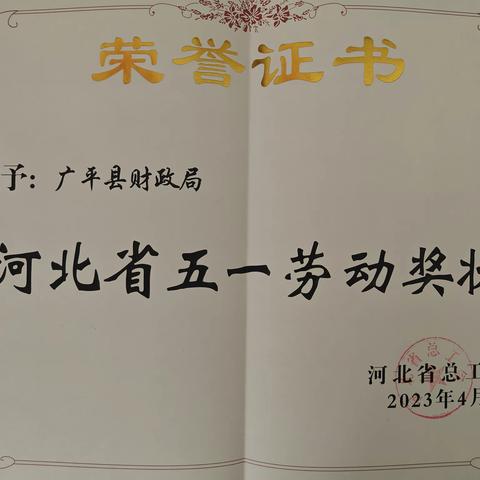 荣誉证书
予：广平县财政局
河北省五一劳动奖状
河北省总工
2023年4月